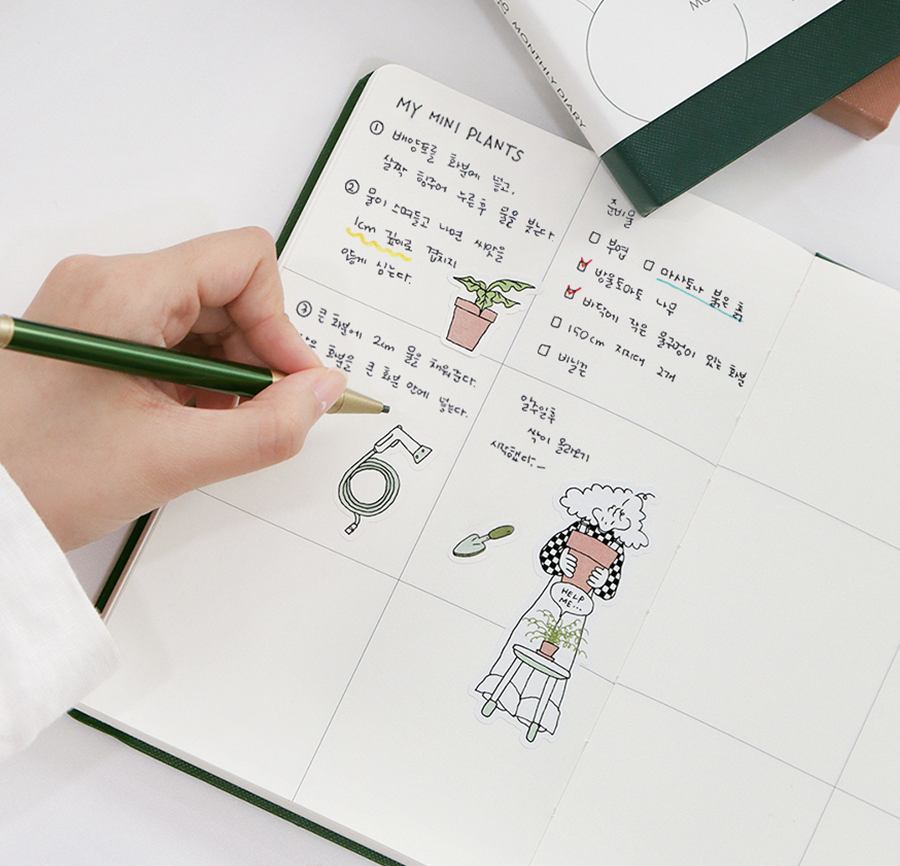 MONTHLY DIARY
MY MINI PLANTS
① 배양토를 화분에 넣고,
살짝 힘주어 누른후 물을 붓는다.
② 물이 스며들고 나면 씨앗을
1cm 깊이로 겹치지
않게 심는다.
③ 큰 화분에 2cm 물을 채워준다.
화분을 큰 화분 안에 넣는다.
준비물
부엽
마사토나 붉은 흙
방울토마토 나무
바닥에 작은 물구멍이 있는 화분
150cm 지지대 2개
비닐끈
일주일후
싹이 올라오기
시작했다.
HELP
ME...